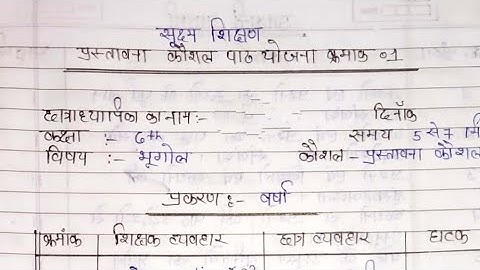 सूक्ष्म शिक्षण
प्रस्तावना कौशल पाठ योजना क्रमांक 01
छात्राध्यापिका का नाम :- दिनाँक
कक्षा :- 6th समय 5 से 7 मि
विषय :- भूगोल कौशल - प्रस्तावना कौशल
प्रकरण :- वर्षा
क्रमांक शिक्षक व्यवहार छात्र व्यवहार घटक